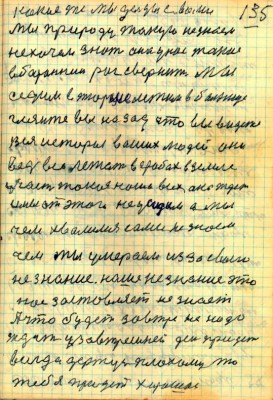 135
какие же мы друзья с вами
мы природу такую не знаем
не хочем знат она дное такие
в бараний рог свернит мы
сядим в тюрме лежим в болнице
гляньте вы назад что вы видите
вся история ваших людей они
ведь все лежат в гробах в земле
участ такоя наша всех она ждет
имы от этого не уйдим а мы
чем хвалимся сами не знаем
чем мы умераем из за своего
незнание. наше незнание это
нас застовляет не знает
А что будет завтре не надо
ждат узавтрешней ден придет
всегда держис плохому то
тебя придет хорошае